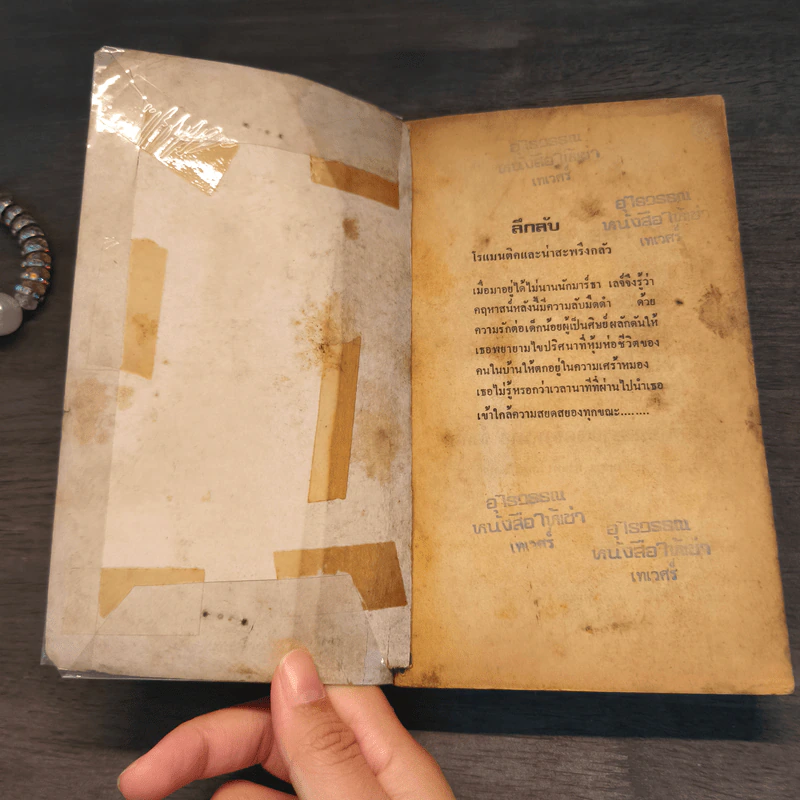 อุไรวรรณ
หนังสือให้เช่า
เทเวศร์
อุไรวรรณ
หนังสือให้เช่า
เทเวศร์
ลึกลับ
โรแมนติคและน่าสะพรึงกลัว
เมื่อมาอยู่ได้ไม่นานนักมาร์ธา เลซ์จึงรู้ว่า
คฤหาสน์หลังนี้มีความลับมืดดำ ด้วย
ความรักต่อเด็กน้อยผู้เป็นศิษย์ผลักดันให้
เธอพยายามไขปริศนาที่หุ้มห่อชีวิตของ
คนในบ้านให้ตกอยู่ในความเศร้าหมอง
เธอไม่รู้หรอกว่าเวลานาทีที่ผ่านไปนำเธอ
เข้าใกล้ความสยดสยองทุกขณะ........
อุไรวรรณ
หนังสือให้เช่า
เทเวศร์
อุไรวรรณ
หนังสือให้เช่า
เทเวศร์